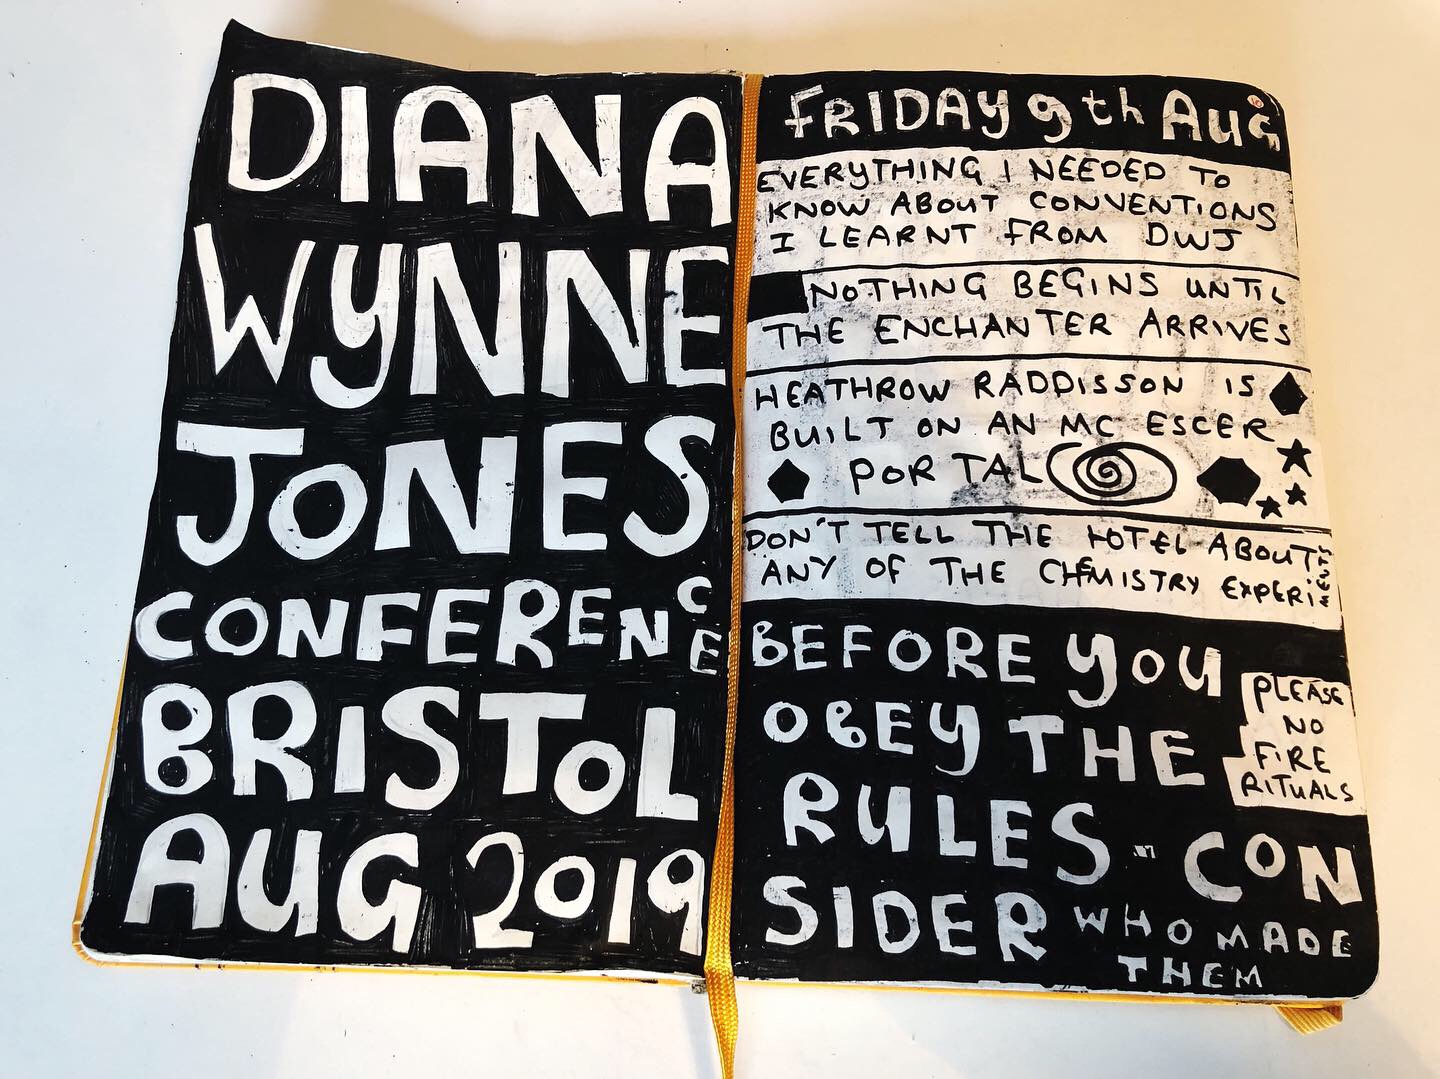 DIANA
WYNNE
JONES
CONFERENCE
BRISTOL
AUG 2019
FRIDAY 9th AUG
EVERYTHING I NEEDED TO
KNOW ABOUT CONVENTIONS
I LEARNT FROM DWJ
NOTHING BEGINS UNTIL
THE ENCHANTER ARRIVES
HEATHROW RADDISSON IS
BUILT ON AN MC ESCER
PORTAL
DON'T TELL THE HOTEL ABOUT
ANY OF THE CHEMISTRY EXPERI
BEFORE YOU
OBEY THE
RULES - CON
SIDER WHO MADE
THEM
PLEASE
NO
FIRE
RITUALS